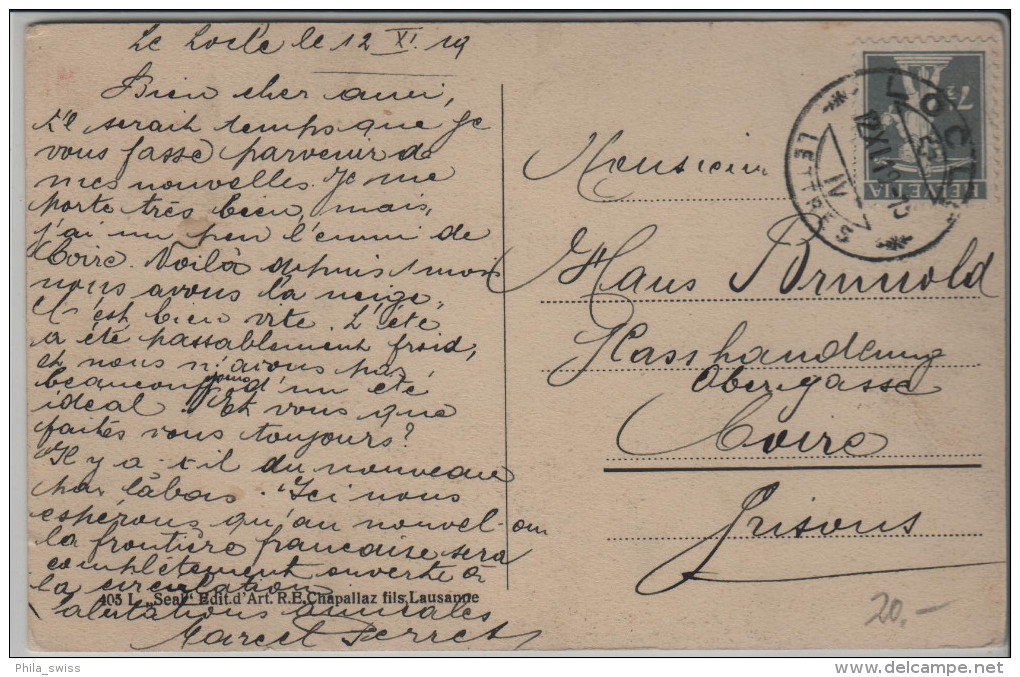 Le Locle le 12 XI. 19
Bien cher ami,
Il serait temps que je
vous fasse parvenir de
mes nouvelles. Je me
porte très bien, mais,
j'ai un peu l'ennui de
Coire. Voilà depuis 1 mois
nous avons la neige,
c'est bien vite. L'été
a été passablement froid,
et nous n'avons pas
beaucoup joui d'un été
idéal. Et vous que
faites vous toujours?
Il y a-t-il du nouveau
par là bas. Ici nous
espérons qu'au nouvel-an
la frontière française sera
complètement ouverte à
la circulation
405 L „Seal" Edit.d'Art. R.E.Chapallaz fils,Lausanne
Salutations amicales
Marcel Perret
Monsieur
Hans Brunold
Glasshandlung
Obergasse
Coire
Grisons
HELVETIA
7½
LOCLE
12.XI.19-15
IV
LETTRES
20.-
Phila_swiss
www.delcampe.net